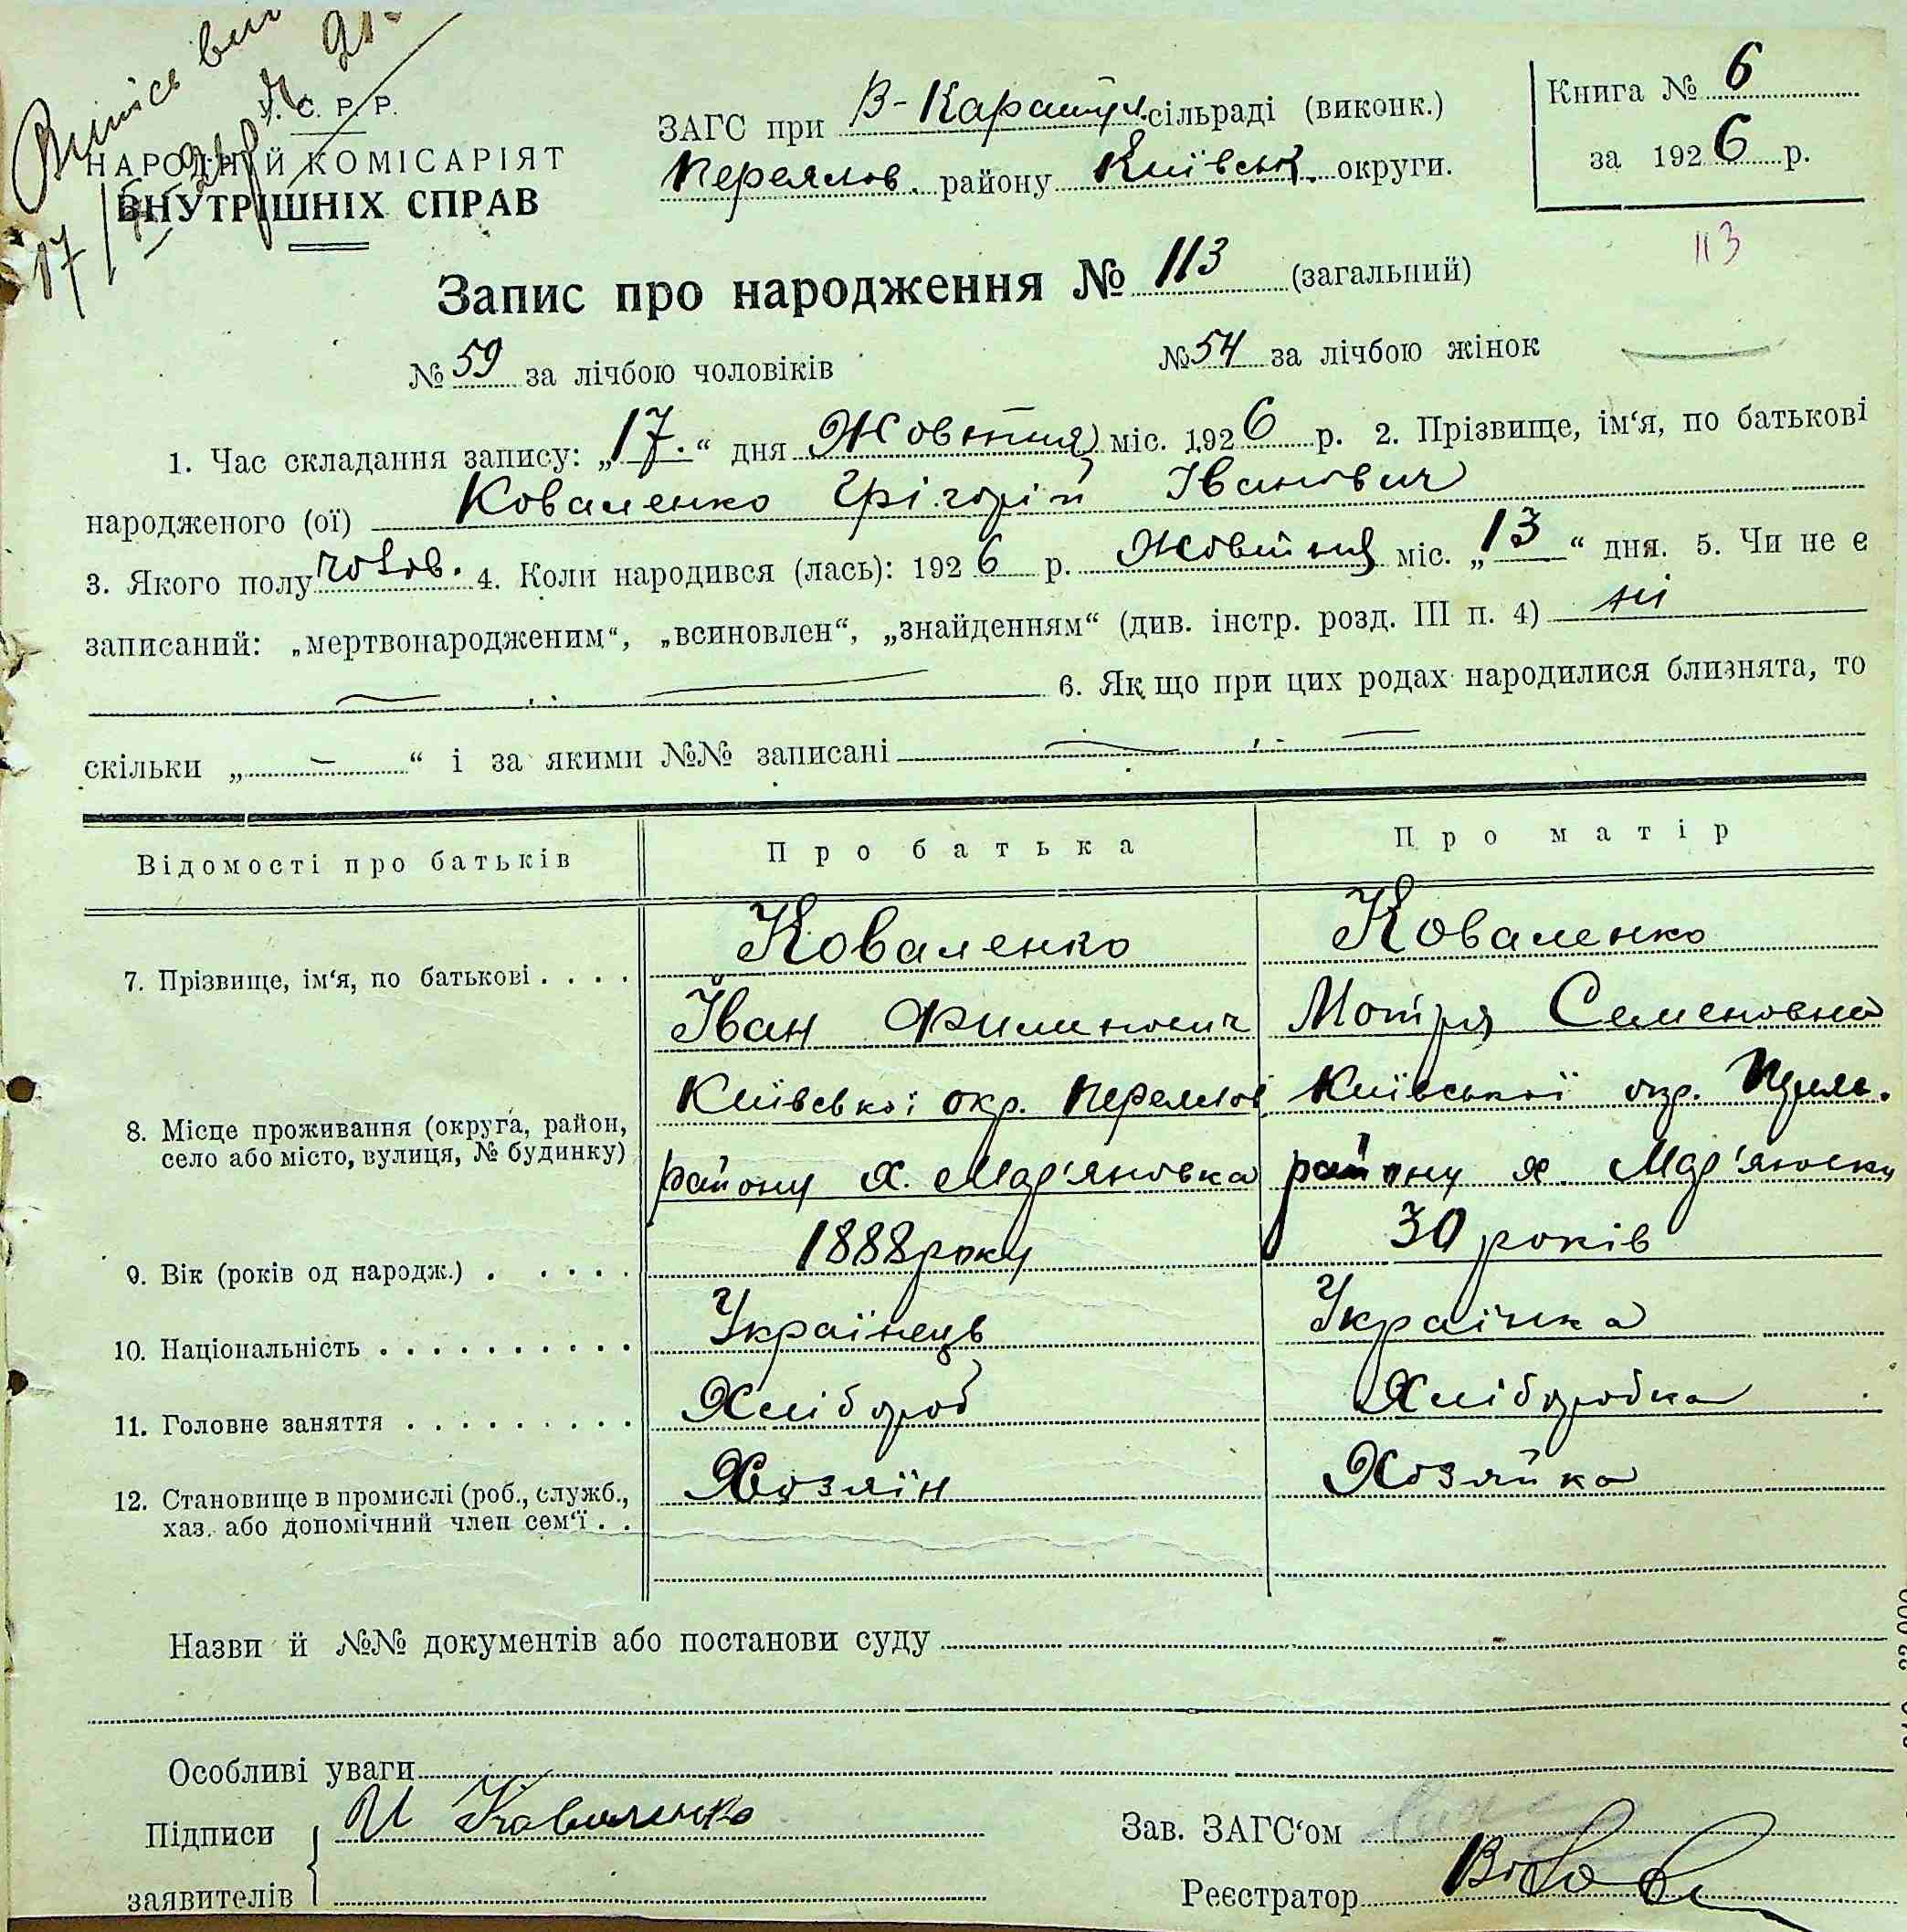 Випись
У. С. Р. Р.
НАРОДНІЙ КОМІСАРІЯТ
ВНУТРІШНІХ СПРАВ
17/
ЗАГС при В-Каратул. сільраді (виконк.)
Переяслов. району Київськ. округи.
Книга № 6
за 1926 р.
113
Запис про народження № 113 (загальний)
№ 59 за лічбою чоловіків № 54 за лічбою жінок
1. Час складання запису: „17.“ дня Жовтня міс. 1926 р. 2. Прізвище, ім‘я, по батькові
народженого (ої) Коваленко Грігорій Іванович
3. Якого полу чолов. 4. Коли народився (лась): 1926 р. Жовтня міс. „13“ дня. 5. Чи не є
записаний: „мертвонародженим“, „всиновлен“, „знайденням“ (див. інстр. розд. III п. 4) ні
6. Як що при цих родах народилися близнята, то
скільки „ — “ і за якими №№ записані
Відомості про батьків Про батька Про матір
7. Прізвище, ім‘я, по батькові . . . . Коваленко Коваленко
Іван Филипович Мотря Семеновна
8. Місце проживання (округа, район,
село або місто, вулиця, № будинку)
Київської окр. Переяслов Київської окр.
району х. Мар'яновка району х. Мар'яновка
9. Вік (років од народж.) . . . . . 1888 року 30 років
10. Національність . . . . . . . . . . Українець Українка
11. Головне заняття . . . . . . . . . Хлібороб Хліборобка
12. Становище в промислі (роб., служб.,
хаз. або допомічний член сем‘ї . .
Хозяїн Хозяйка
Назви й №№ документів або постанови суду
Особливі уваги
Підписи И Коваленко
заявителів
Зав. ЗАГС‘ом
Реєстратор